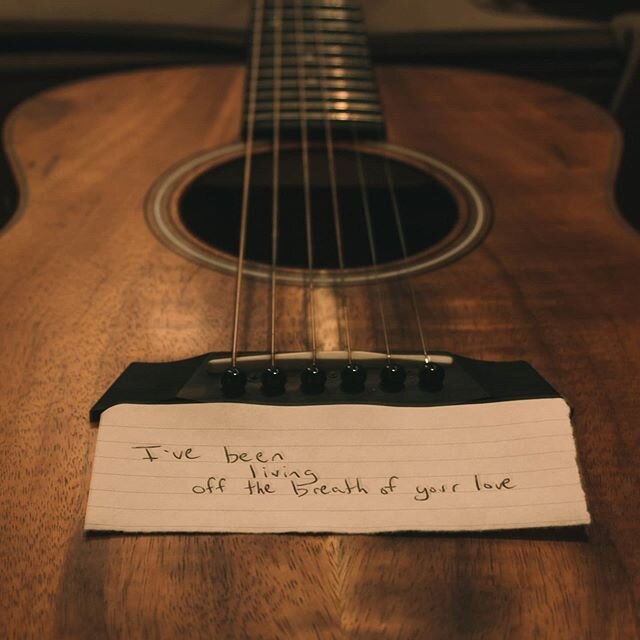 I've been
living
off the breath of your love